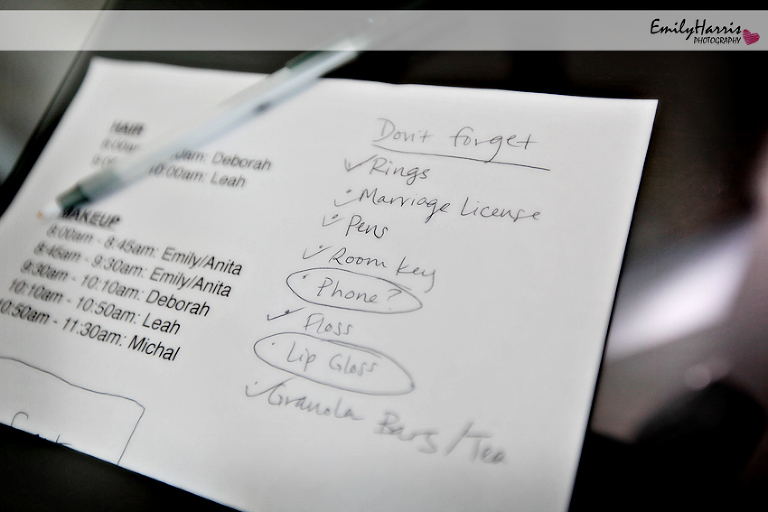 EmilyHarris
PHOTOGRAPHY
HAIR
am: Deborah
10:00am: Leah
MAKEUP
8:00am - 8:45am: Emily/Anita
8:45am - 9:30am: Emily/Anita
9:30am - 10:10am: Deborah
10:10am - 10:50am: Leah
10:50am - 11:30am: Michal
Don't forget
Rings
Marriage License
Pens
Room key
Phone?
Floss
Lip Gloss
Granola Bars/Tea